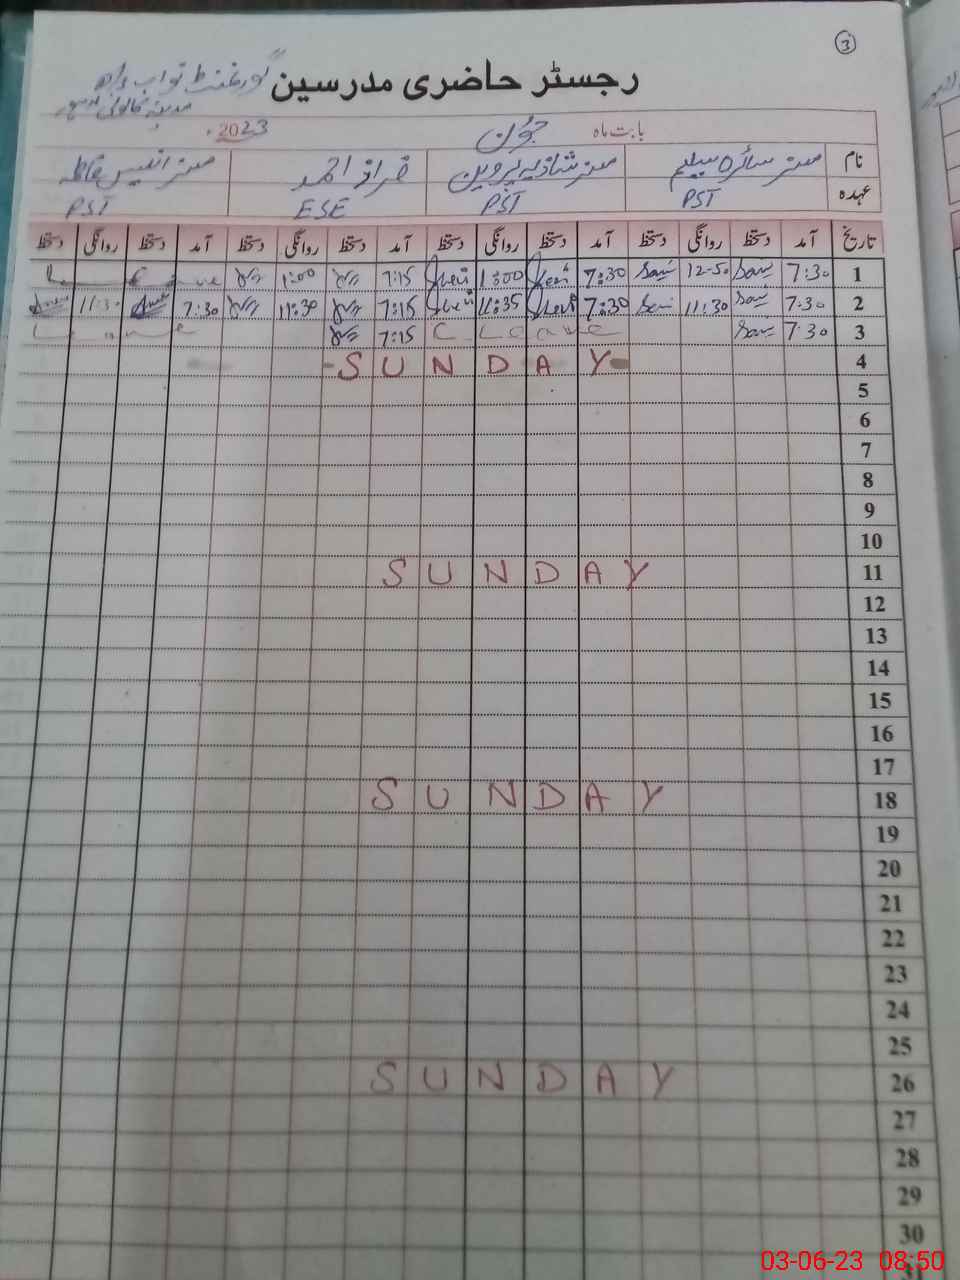 3
رجسٹر حاضری مدرسین
گورنمنٹ نواب
مدینہ کالونی لاہور
بابت ماہ جون 2023ء
نام مسز سائرہ سلیم مسز شازیہ پروین فراز احمد مسز انیس فاطمہ
عہدہ PST PST ESE PST
تاریخ آمد دستخط روانگی دستخط آمد دستخط روانگی دستخط آمد دستخط روانگی دستخط آمد دستخط روانگی دستخط
1 7:30 12-50 7:30 1:00 7:15 1:00 Leave
2 7:30 11:30 7:30 11:35 7:15 11:30 7:30 11:30
3 7:30 C. Leave 7:15 Leave
4 SUNDAY
5
6
7
8
9
10
11 SUNDAY
12
13
14
15
16
17
18 SUNDAY
19
20
21
22
23
24
25
26 SUNDAY
27
28
29
30
31
03-06-23 08:50